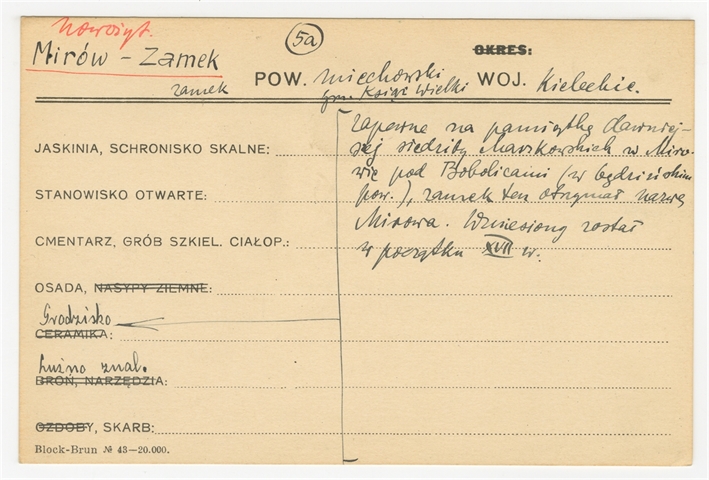 nowożyt.
5a
Mirów - Zamek
OKRES:
zamek
POW. miechowski WOJ. Kieleckie.
gm. Książ Wielki
JASKINIA, SCHRONISKO SKALNE:
STANOWISKO OTWARTE:
CMENTARZ, GRÓB SZKIEL. CIAŁOP.:
OSADA, NASYPY ZIEMNE:
Grodzisko
CERAMIKA:
Luźno znal.
BROŃ, NARZĘDZIA:
OZDOBY, SKARB:
Block-Brun № 43—20.000.
Zapewne na pamiątkę dawniej-
szej siedziby Myszkowskich w Miro-
wie pod Bobolicami (w będzińskim
pow.), zamek ten otrzymał nazwę
Mirowa. Wzniesiony został
w początku XVII w.